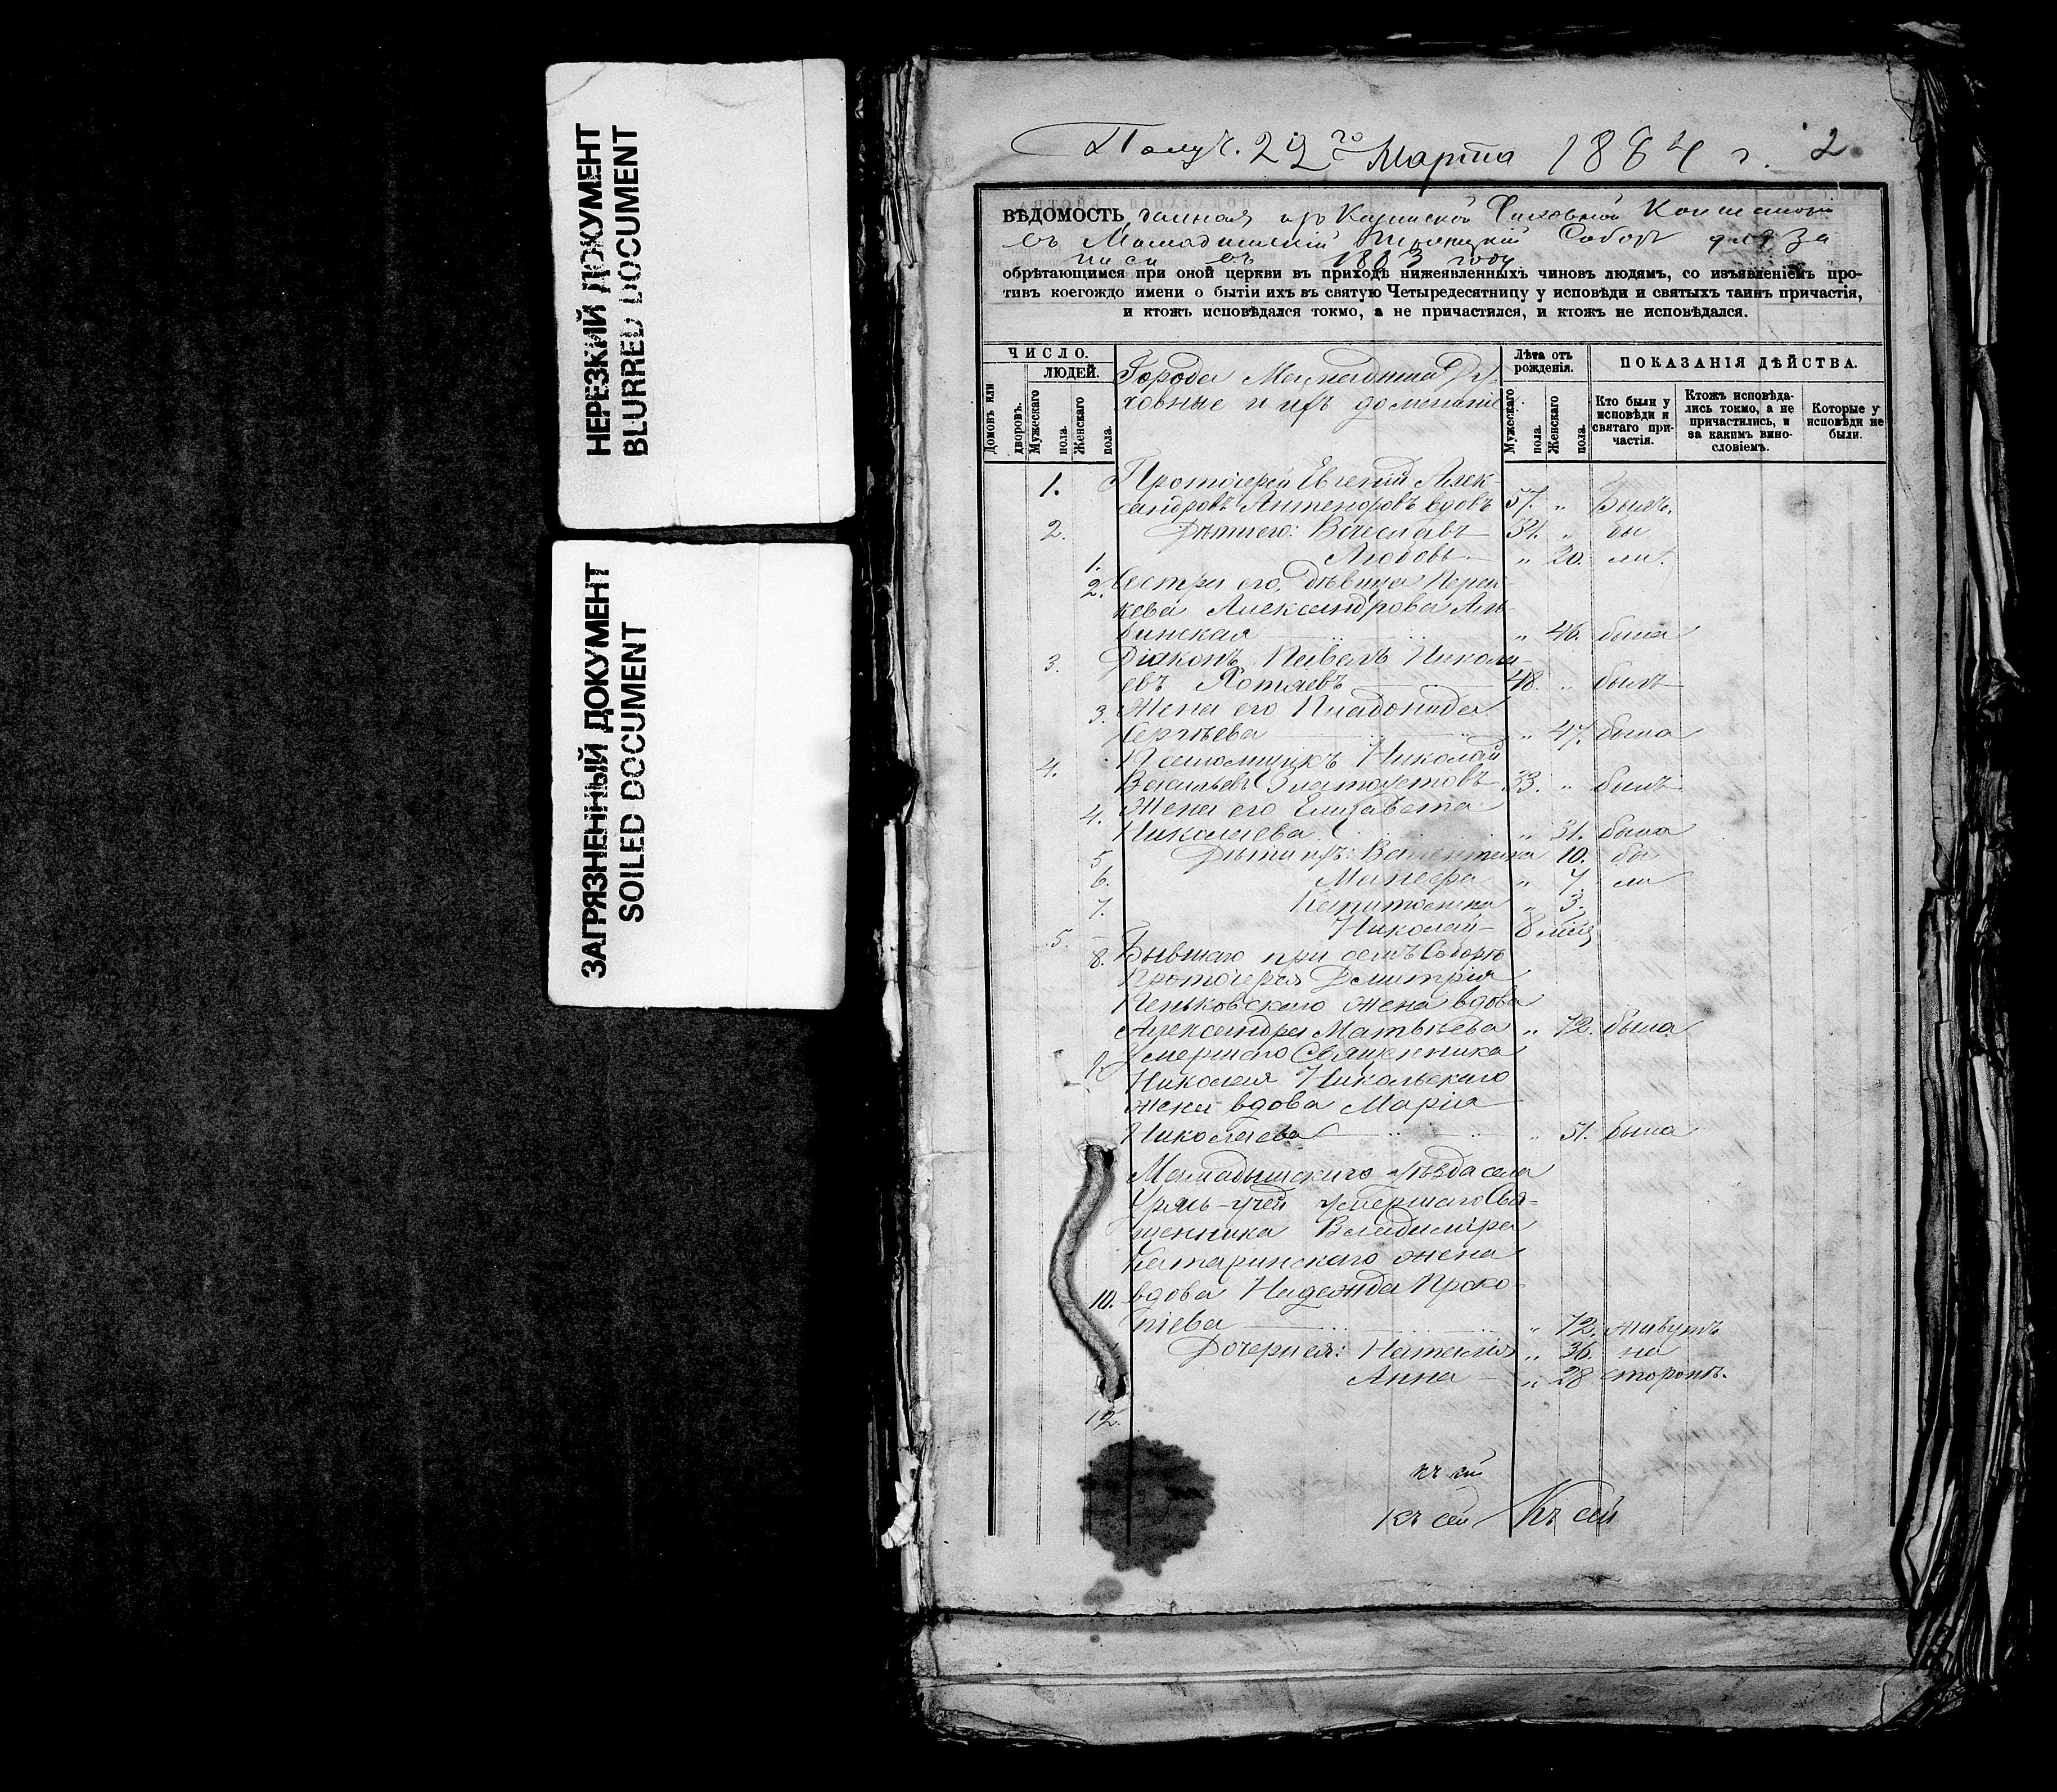 НЕРЕЗКИЙ ДОКУМЕНТ
BLURRED DOCUMENT
ЗАГРЯЗНЕННЫЙ ДОКУМЕНТ
SOILED DOCUMENT
Получ. 22го Марта 1884 г. 2
ВѢДОМОСТЬ, данная изъ Казанской Духовной
въ Мамадышскій Троицкій Соборъ для за
писи въ 1883 году
обрѣтающимся при оной церкви въ приходѣ нижеявленныхъ чиновъ людямъ, со изъявленіемъ про-
тивъ коегождо имени о бытіи ихъ въ святую Четыредесятницу у исповѣди и святыхъ таинъ причастія,
и ктожъ исповѣдался токмо, а не причастился, и ктожъ не исповѣдался.
ЧИСЛО.
ЛЮДЕЙ.
Домовъ или дворовъ.
Мужескаго пола.
Женскаго пола.
Города Мамадыша Ду-
ховные и ихъ домашніе
Лѣта отъ рожденія.
Мужескаго пола.
Женскаго пола.
ПОКАЗАНІЯ ДѢЙСТВА.
Кто были у исповѣди и святаго при-частія.
Ктожъ исповѣда-лись токмо, а не причастились, и за какимъ вино-словіемъ.
Которые у исповѣди не были.
1. Протоіерей Евгеній Алек-
сандровъ вдовъ 57. " Былъ.
2. Дѣти его: Вячеславъ 31. " бы
1. Любовь " 20. ли.
2. Сестра его, дѣвица Парас-
кева Александрова
" 46. была
3. Діаконъ Павелъ Никола-
евъ Хотяевъ 48. " былъ
3. Жена его
Сергѣева " 47. была
4. Псаломщикъ Николай
Васильевъ Златоустовъ 33. " былъ
4. Жена его Елизавета
Николаева " 31. была
5. Дѣти ихъ: Валентина " 10. бы
6. " 7. ли
7. Капитолина " 3.
5. Николай 8 мѣс
8. Бывшаго при семъ Соборѣ
Протоіерея Димитрія
Пеньковскаго жена вдова
Александра Матвѣева " 72. была
9. Умершаго Священника
Николая Никольскаго
жена вдова Марія
Николаева " 51. была
Мамадышскаго уѣзда села
Урясь-Учей умершаго Свя-
щенника Владиміра
Катаринскаго жена
10. вдова Надежда Проко-
піева " 72. живутъ
Дочери ея: Наталія " 36. на
Анна " 28 сторонѣ.
12.
къ сей
къ сей Къ сей